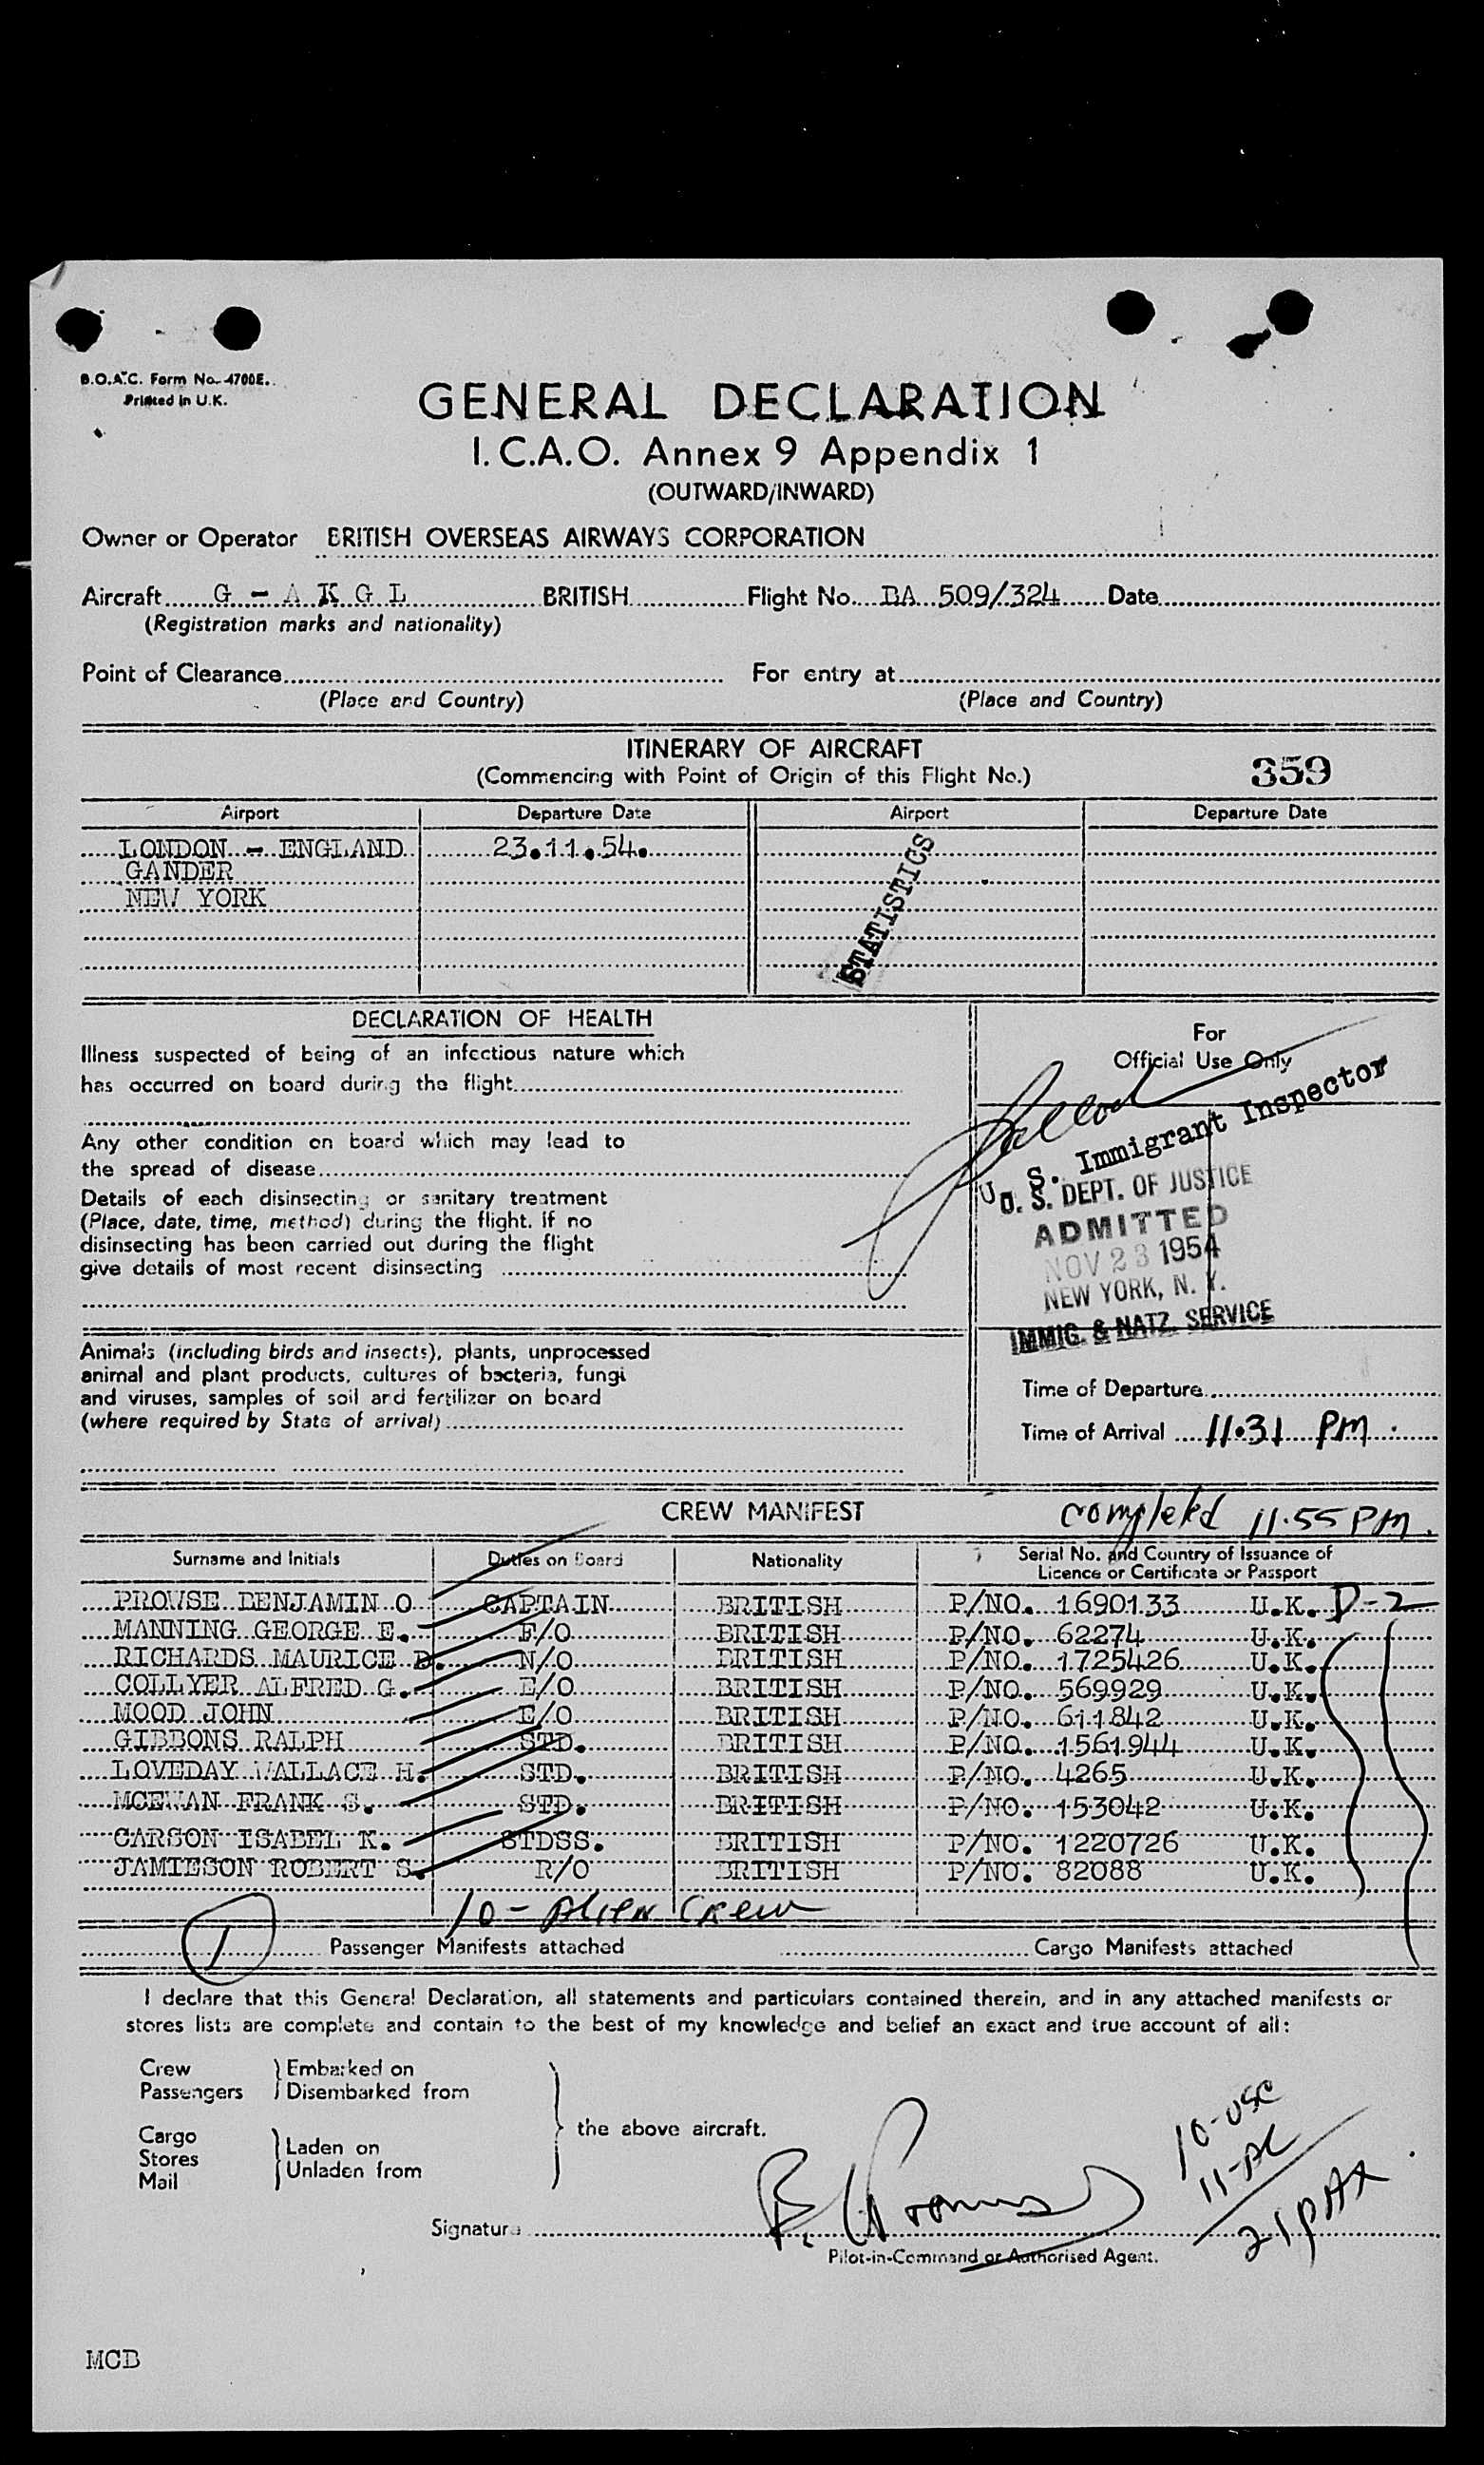 B.O.A.C. Form No. 4700E.
Printed in U.K.
GENERAL DECLARATION
I.C.A.O. Annex 9 Appendix 1
(OUTWARD/INWARD)
Owner or Operator BRITISH OVERSEAS AIRWAYS CORPORATION
Aircraft G - A K G L BRITISH Flight No. BA 509/324 Date
(Registration marks and nationality)
Point of Clearance For entry at
(Place and Country) (Place and Country)
ITINERARY OF AIRCRAFT
(Commencing with Point of Origin of this Flight No.) 359
Airport Departure Date Airport Departure Date
LONDON - ENGLAND 23.11.54.
GANDER
NEW YORK
STATISTICS
DECLARATION OF HEALTH
Illness suspected of being of an infectious nature which
has occurred on board during the flight
Any other condition on board which may lead to
the spread of disease
Details of each disinsecting or sanitary treatment
(Place, date, time, method) during the flight. If no
disinsecting has been carried out during the flight
give details of most recent disinsecting
For
Official Use Only
U. S. Immigrant Inspector
U. S. DEPT. OF JUSTICE
ADMITTED
NOV 23 1954
NEW YORK, N. Y.
IMMIG. & NATZ. SERVICE
Animals (including birds and insects), plants, unprocessed
animal and plant products, cultures of bacteria, fungi
and viruses, samples of soil and fertilizer on board
(where required by State of arrival)
Time of Departure
Time of Arrival 11.31 PM.
CREW MANIFEST completed 11.55 PM.
Surname and Initials Duties on Board Nationality Serial No. and Country of Issuance of
Licence or Certificate or Passport
PROWSE BENJAMIN O CAPTAIN BRITISH P/NO. 1690133 U.K. D-2
MANNING GEORGE E. F/O BRITISH P/NO. 62274 U.K.
RICHARDS MAURICE D. N/O BRITISH P/NO. 1725426 U.K.
COLLYER ALFRED G. E/O BRITISH P/NO. 569929 U.K.
MOOD JOHN E/O BRITISH P/NO. 611842 U.K.
GIBBONS RALPH STD. BRITISH P/NO. 1561944 U.K.
LOVEDAY WALLACE H. STD. BRITISH P/NO. 4265 U.K.
MCEWAN FRANK S. STD. BRITISH P/NO. 153042 U.K.
CARSON ISABEL K. STDSS. BRITISH P/NO. 1220726 U.K.
JAMIESON ROBERT S. R/O BRITISH P/NO. 82088 U.K.
10 - Alien Crew
1 Passenger Manifests attached Cargo Manifests attached
I declare that this General Declaration, all statements and particulars contained therein, and in any attached manifests or
stores lists are complete and contain to the best of my knowledge and belief an exact and true account of all:
Crew Embarked on
Passengers Disembarked from
the above aircraft.
Cargo
Stores Laden on
Mail Unladen from
10-USC
11-AL
21 PAX
Signature B. Prowse
Pilot-in-Command or Authorised Agent.
MCB